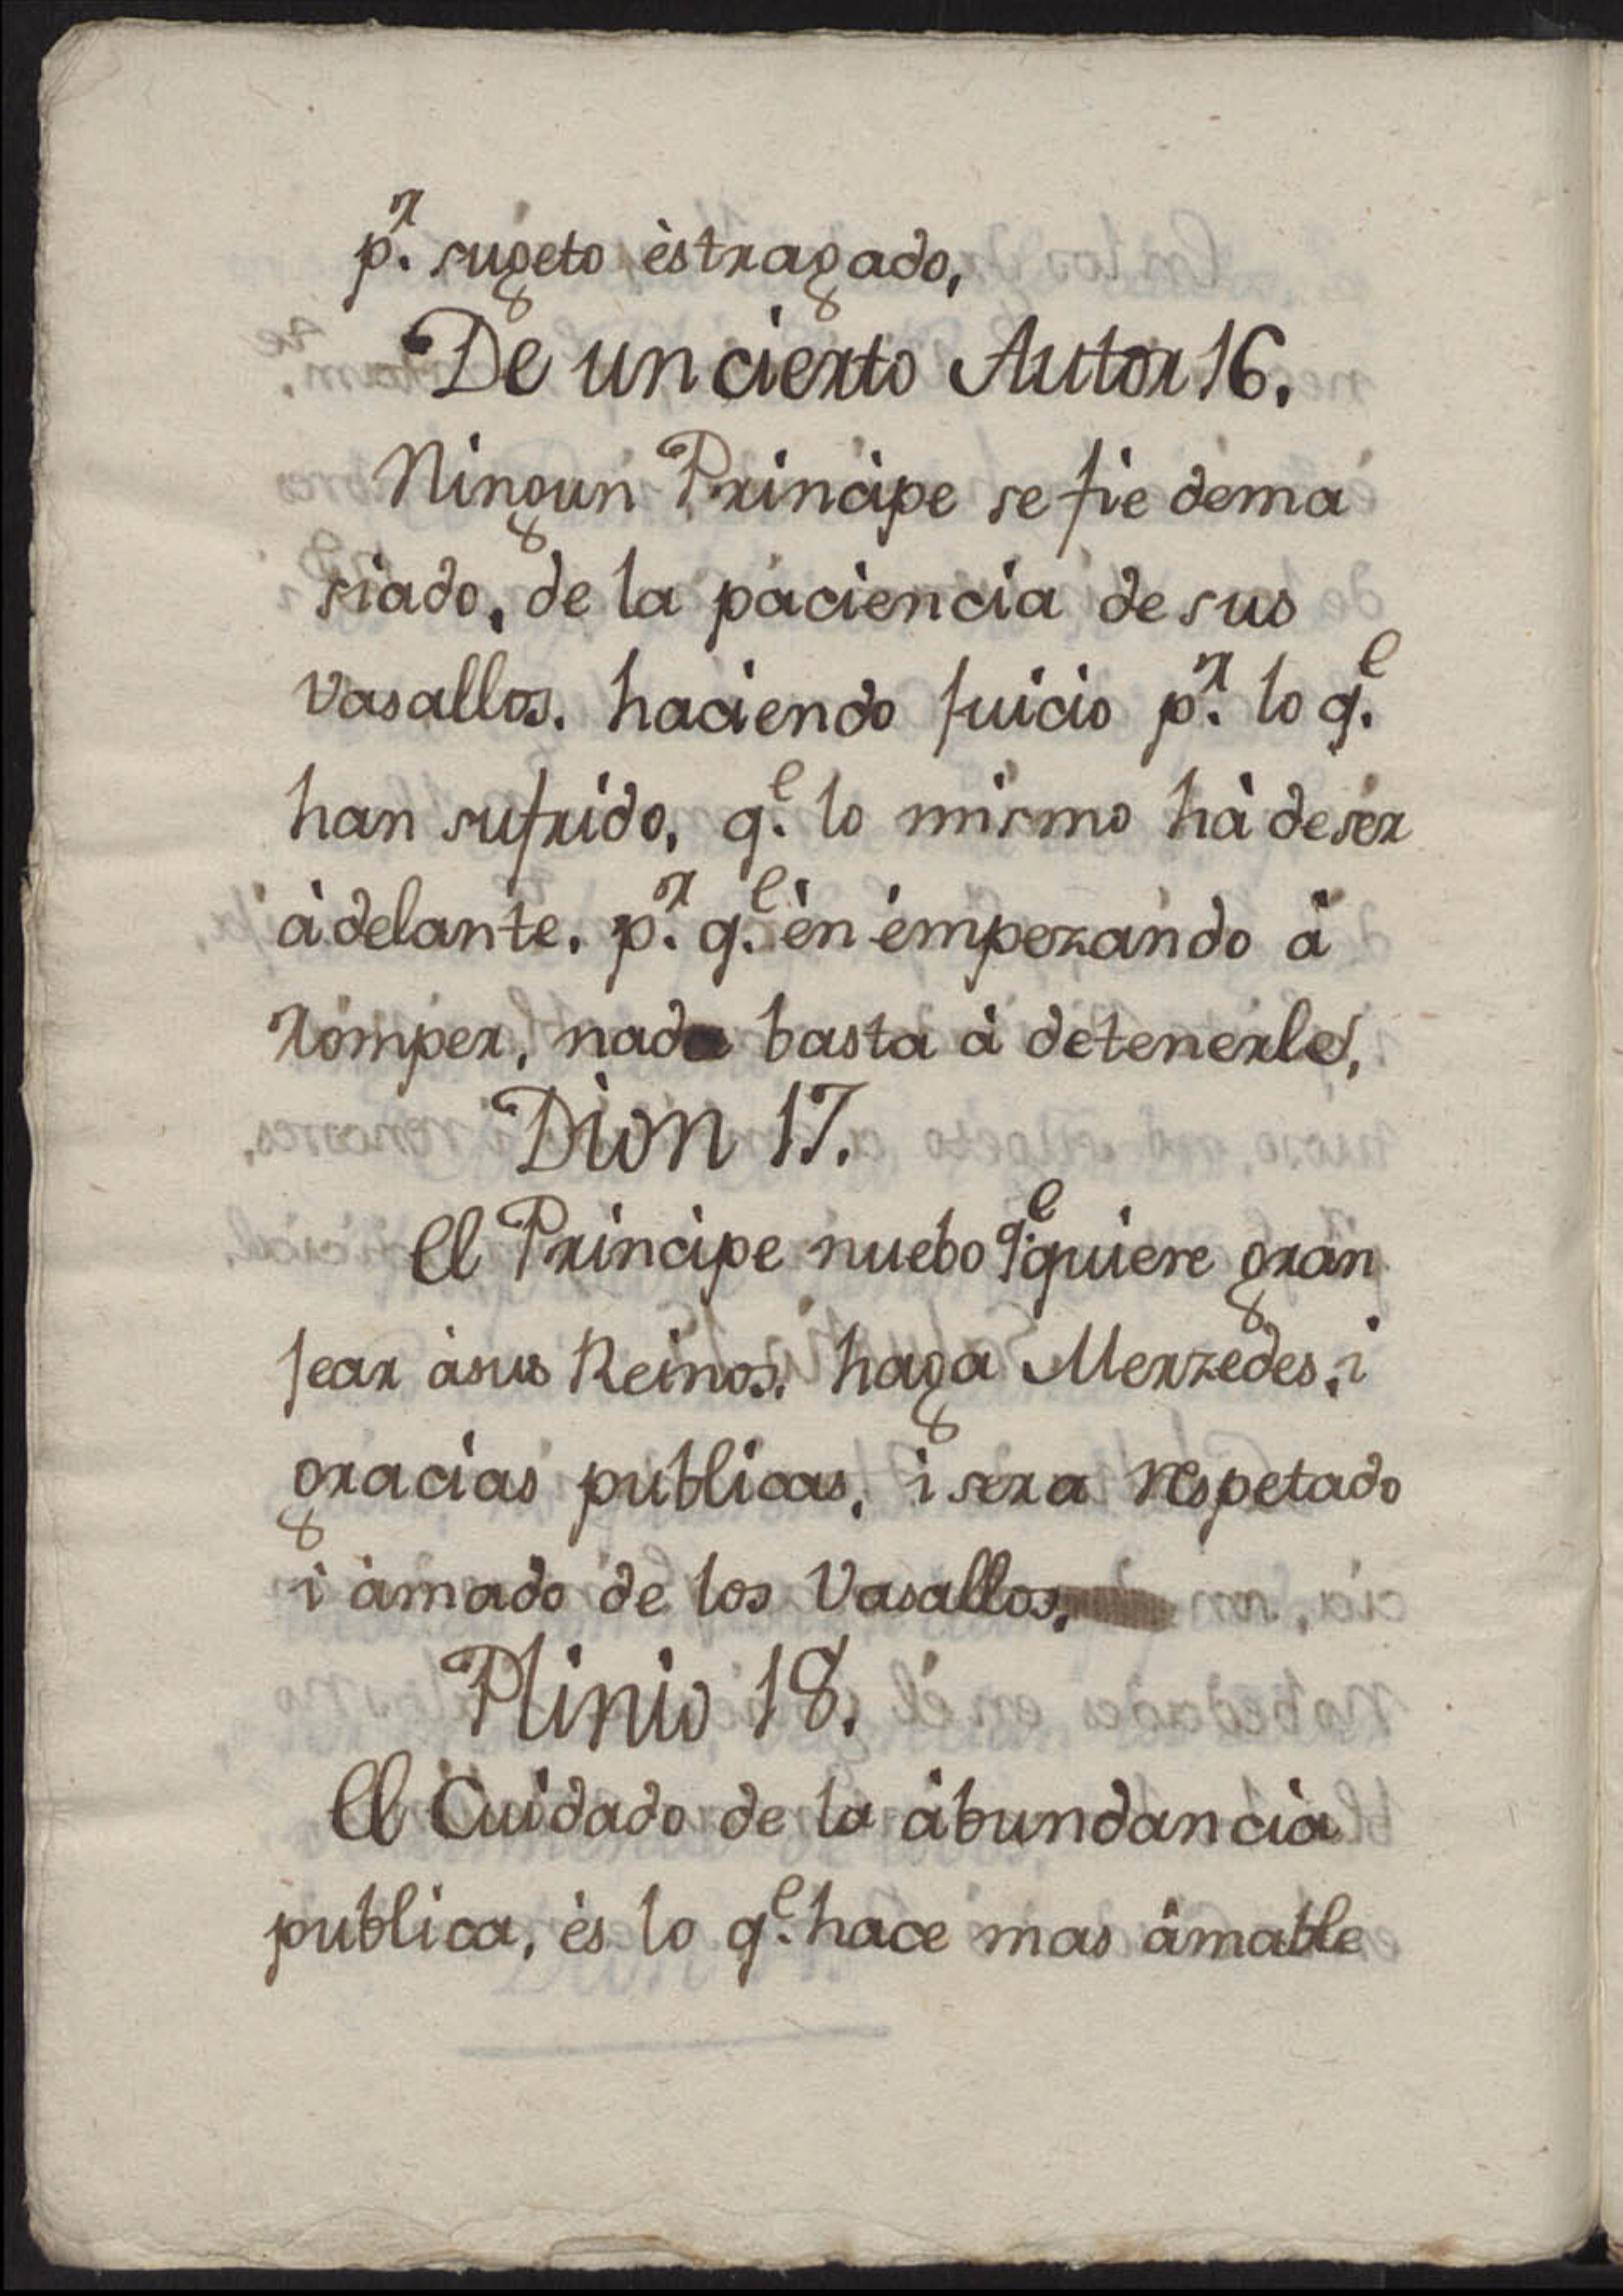 p.r sugeto èstragado,
De un cierto Autor 16.
Ningun Principe se fie dema
siado, de la paciencia de sus
vasallos. haciendo juicio p.r lo q.e
han sufrido, q.e lo mismo hà de ser
àdelante. p.r q.e èn èmpezando à
Romper, nada basta à detenerle,
Dion 17.
El Principe nuebo q.e quiere gran
jear àsus Reinos. haga Merzedes, i
gracias publicas, i sera respetado
i àmado de los Vasallos.
Plinio 18.
El Cuidado de la àbundancia
publica, ès lo q.e hace mas àmable